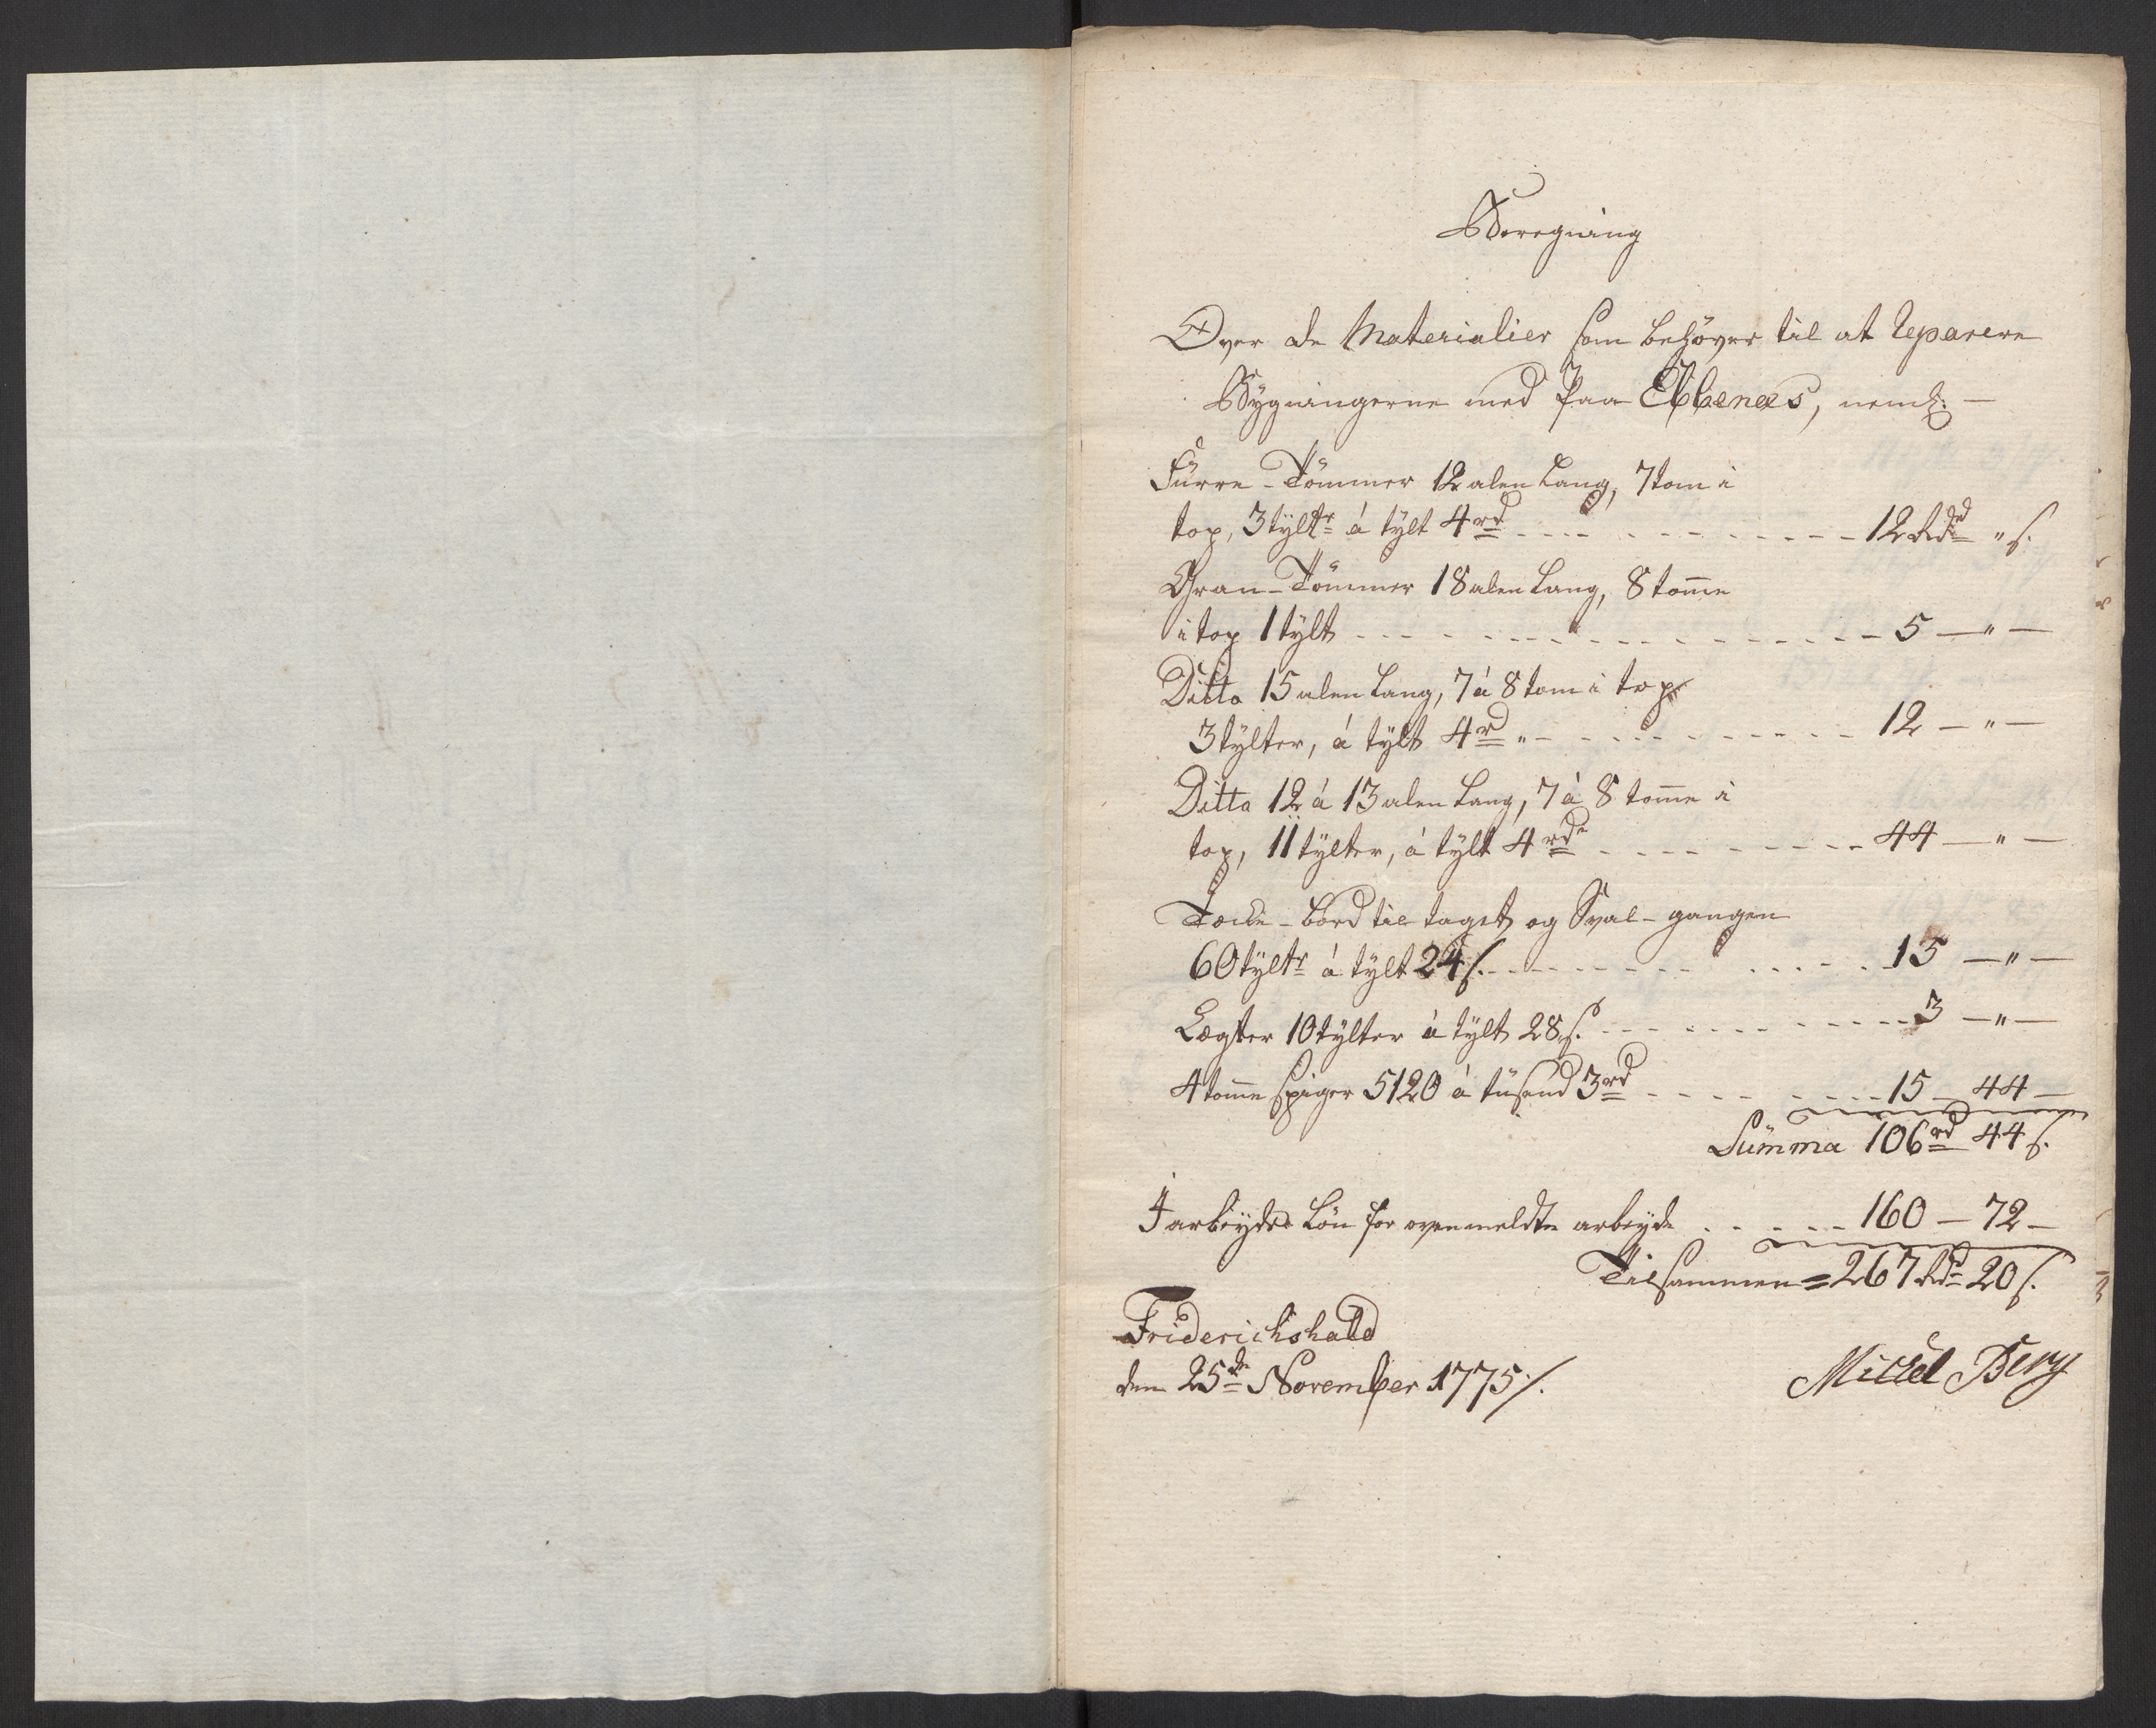 Beregning
Over de Materialier som behøves til at Reparere
Bygningerne med paa Ebbenæs, neml:
Fürre-Tømmer 12 alen Lang, 7 tom i
top, 3 tylt:r á tylt 4 rd - - - - - - - - 12 Rd „ s.
Gran-Tømmer 18 alen Lang, 8 tomme
i top 1 tylt - - - - - - - - - - - - - 5 — „ —
Ditto 15 alen Lang, 7 á 8 tom i top
3 tylter, á tylt 4 rd „ - - - - - - - 12 — „ —
Ditto 12 á 13 alen Lang, 7 á 8 tomme i
top, 11 tylter, á tylt 4 rd - - - - - - - 44 — „ —
Tække-bord til taget og Sval-gangen
60 tylt:r á tylt 24 s. - - - - - - - - - 15 — „ —
Lægter 10 tylter á tylt 28 s. - - - - - - - 3 — „ —
4 tomme Spiger 5120 á tüsend 3 rd - - - - - 15 — 44 —
Summa 106 rd 44 s.
I arbeyds Løn for ovenmeldte arbeyde - - - - - 160 — 72 —
Tilsammen = 267 Rd 20 s.
Friderichshald
den 25de November 1775 /.
Michel Berg